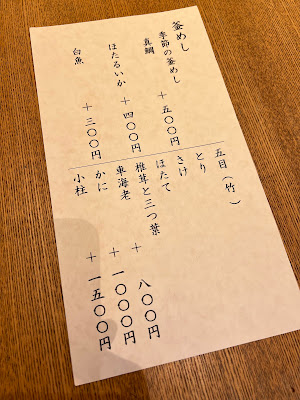 釜めし
季節の釜めし
真鯛 +五〇〇円
ほたるいか +四〇〇円
白魚 +三〇〇円
五目(竹)
とり
さけ
ほたて
椎茸と三つ葉
車海老 + 八〇〇円
かに +一〇〇〇円
小柱 +一五〇〇円